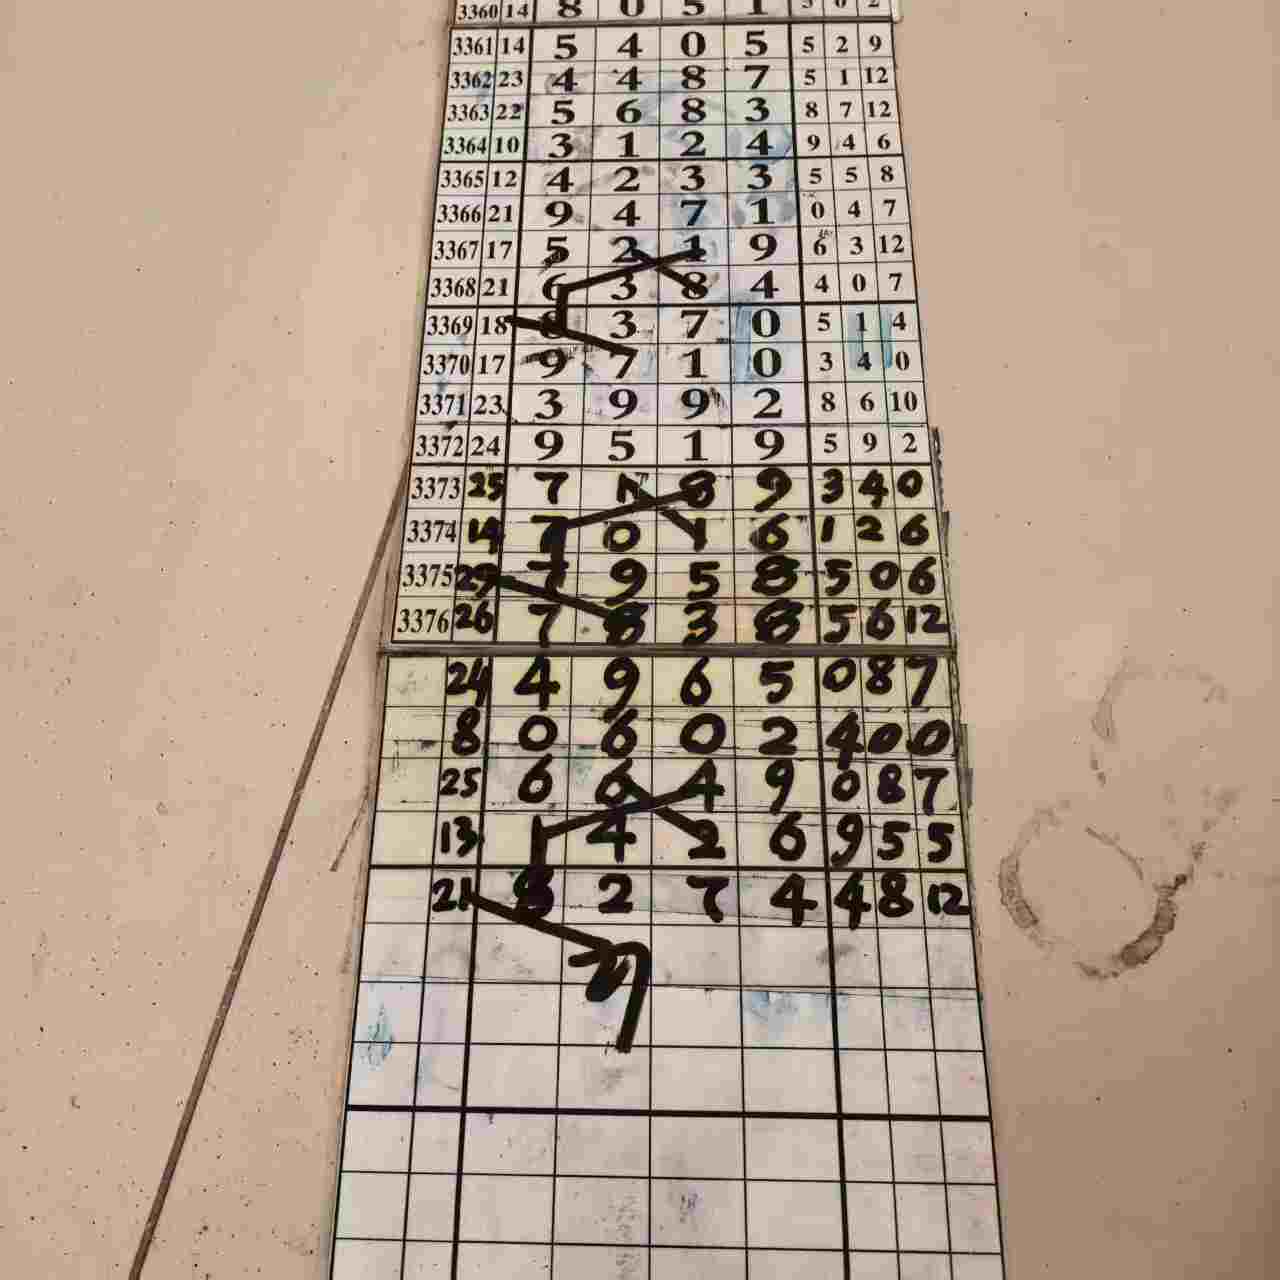 3360 14 8 0 5 1 5 0 2
3361 14 5 4 0 5 5 2 9
3362 23 4 4 8 7 5 1 12
3363 22 5 6 8 3 8 7 12
3364 10 3 1 2 4 9 4 6
3365 12 4 2 3 3 5 5 8
3366 21 9 4 7 1 0 4 7
3367 17 5 2 1 9 6 3 12
3368 21 6 3 8 4 4 0 7
3369 18 8 3 7 0 5 1 4
3370 17 9 7 1 0 3 4 0
3371 23 3 9 9 2 8 6 10
3372 24 9 5 1 9 5 9 2
3373 25 7 1 8 9 3 4 0
3374 14 7 0 1 6 1 2 6
3375 29 7 9 5 8 5 0 6
3376 26 7 8 3 8 5 6 12
24 4 9 6 5 0 8 7
8 0 6 0 2 4 0 0
25 6 6 4 9 0 8 7
13 1 4 2 6 9 5 5
21 8 2 7 4 4 8 12